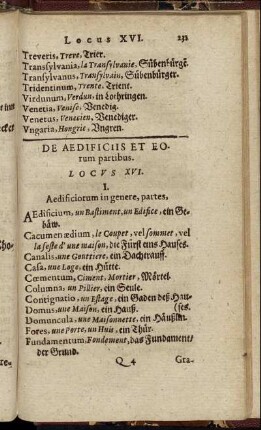 Locus XVI. 232
Treveris, Treve, Trier.
Transsylvania, la Transylvanie, Sübenbürgē.
Transylvanus, Transylvain, Sübenbürger.
Tridentinum, Trente, Trient.
Virdunum, Verdun, in Lothringen.
Venetia, Venise, Venedig.
Venetus, Venetien, Venediger.
Vngaria, Hongrie, Vngren.
DE AEDIFICIIS ET EO-
rum partibus.
LOCVS XVI.
I.
Aedificiorum in genere, partes,
AEdificium, un Bastiment, un Edifice, ein Ge-
bäw.
Cacumen ædium, le Coupet, vel sommet, vel
la feste d'une maison, die Fürst eins Hauses.
Canalis, une Gouttiere, ein Dachtrauff.
Casa, une Loge, ein Hütte.
Cæmentum, Ciment, Mortier, Mörtel.
Columna, un Pilier, ein Seule.
Contignatio, un Estage, ein Gaden deß Hau-
Domus, une Maison, ein Hauß. (ses.
Domuncula, une Maisonnette, ein Häußlin.
Fores, une porte, un Huis, ein Thür.
Fundamentum, Fondement, das Fundament/
der Grund.
Q 4 Gra-